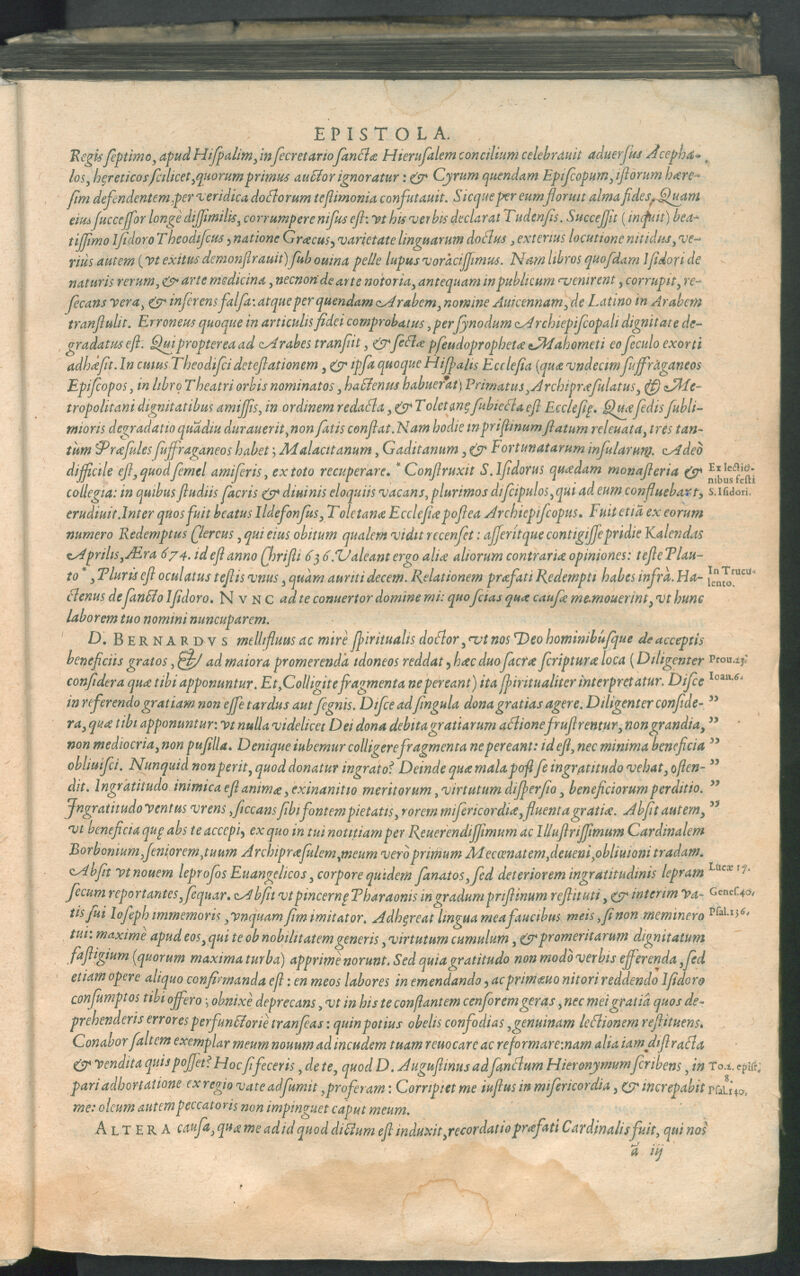 EPISTOLA.
Regis ſeptimo, apud Hiſpalim, in ſecretario ſanctæ Hieruſalem concilium celebrauit aduerſus Acepha-
los, hęreticos ſcilicet, quorum primus auctor ignoratur: & Cyrum quendam Epiſcopum, iſtorum hære-
ſim defendentem, per veridica doctorum teſtimonia confutauit. Sicque per eum floruit alma fides. Quam
eius ſucceſſor longè diſſimilis, corrumpere niſus eſt: vt his verbis declarat Tudenſis. Succeſſit (inquit) bea-
tiſſimo Iſidoro Theodiſcus, natione Græcus, varietate linguarum doctus, exterius locutione nitidus, ve-
riùs autem (vt exitus demonſtrauit) ſub ouina pelle lupus voràciſſimus. Nam libros quoſdam Iſidori de
naturis rerum, & arte medicina, necnon de arte notoria, antequam in publicum venirent, corrupit, re-
ſecans vera, & inſerens falſa: atque per quendam Arabem, nomine Auicennam, de Latino in Arabem
tranſtulit. Erroneus quoque in articulis fidei comprobatus, per ſynodum Archiepiſcopali dignitate de-
gradatus eſt. Qui propterea ad Arabes tranſiit, & ſectæ pſeudoprophetæ Mahometi eo ſeculo exorti
adhæſit. In cuius Theodiſci deteſtationem, & ipſa quoque Hiſpalis Eccleſia (quæ vndecim ſuffraganeos
Epiſcopos, in libro Theatri orbis nominatos, hactenus habuerat) Primatus, Archipræſulatus, & Me-
tropolitani dignitatibus amiſſis, in ordinem redacta, & Toletanę ſubiecta eſt Eccleſię. Quæ ſedis ſubli-
mioris degradatio quãdiu durauerit, non ſatis conſtat. Nam hodie in priſtinum ſtatum releuata, tres tan-
tùm Præſules ſuffraganeos habet; Malacitanum, Gaditanum, & Fortunatarum inſularum. Adeò
difficile eſt, quod ſemel amiſeris, ex toto recuperare. * Conſtruxit S. Iſidorus quædam monaſteria & Ex lectio-
nibus feſti
collegia: in quibus ſtudiis ſacris & diuinis eloquiis vacans, plurimos diſcipulos, qui ad eum confluebant, S. Iſidori.
erudiuit. Inter quos fuit beatus Ildefonſus, Toletanæ Eccleſiæ poſtea Archiepiſcopus. Fuit etiã ex eorum
numero Redemptus Clericus, qui eius obitum qualem vidit recenſet: aſſerítque contigiſſe pridie Kalendas
Aprilis, Æra 674. id eſt anno Chriſti 636. Valeant ergo aliæ aliorum contrariæ opiniones: teſte Plau-
to *, Pluris eſt oculatus teſtis vnus, quàm auriti decem. Relationem præfati Redempti habes infrà. Ha- In Trucu-
lento.
ctenus de ſancto Iſidoro. NVNC ad te conuertor domine mi: quo ſcias quæ cauſæ me mouerint, vt hunc
laborem tuo nomini nuncuparem.
D. BERNARDVS mellifluus ac mirè ſpiritualis doctor, vt nos Deo hominibúſque de acceptis
beneficiis gratos, & ad maiora promerenda idoneos reddat, hæc duo ſacræ ſcripturæ loca (Diligenter Prou.23.
conſidera quæ tibi apponuntur. Et, Colligite fragmenta ne pereant) ita ſpiritualiter interpretatur. Diſce Ioan.6.
in referendo gratiam non eſſe tardus aut ſegnis. Diſce ad ſingula dona gratias agere. Diligenter conſide- ”
ra, quæ tibi apponuntur: vt nulla videlicet Dei dona debita gratiarum actione fruſtrentur, non grandia, ”
non mediocria, non puſilla. Denique iubemur colligere fragmenta ne pereant: id eſt, nec minima beneficia ”
obliuiſci. Nunquid non perit, quod donatur ingrato? Deinde quæ mala poſt ſe ingratitudo vehat, oſten- ”
dit. Ingratitudo inimica eſt animæ, exinanitio meritorum, virtutum diſperſio, beneficiorum perditio. ”
Ingratitudo ventus vrens, ſiccans ſibi fontem pietatis, rorem miſericordiæ, fluenta gratiæ. Abſit autem, ”
vt beneficia quę abs te accepi, ex quo in tui notitiam per Reuerendiſſimum ac Illuſtriſſimum Cardinalem
Borbonium, ſeniorem, tuum Archipræſulem, meum verò primum Mecœnatem, deueni, obliuioni tradam.
Abſit vt nouem leproſos Euangelicos, corpore quidem ſanatos, ſed deteriorem ingratitudinis lepram Lucæ 17.
ſecum reportantes, ſequar. Abſit vt pincernę Pharaonis in gradum priſtinum reſtituti, & interim va- Geneſ.40.
tis ſui Ioſeph immemoris, vnquam ſim imitator. Adhęreat lingua mea faucibus meis, ſi non meminero Pſal.136.
tui: maximè apud eos, qui te ob nobilitatem generis, virtutum cumulum, & promeritarum dignitatum
faſtigium (quorum maxima turba) apprimè norunt. Sed quia gratitudo non modò verbis efferenda, ſed
etiam opere aliquo confirmanda eſt: en meos labores in emendando, ac primæuo nitori reddendo Iſidoro
conſumptos tibi offero; obnixè deprecans, vt in his te conſtantem cenſorem geras, nec mei gratiâ quos de-
prehenderis errores perfunctoriè tranſeas: quin potius obelis confodias, genuinam lectionem reſtituens.
Conabor ſaltem exemplar meum nouum ad incudem tuam reuocare ac reformare: nam alia iam diſtracta
& vendita quis poſſet? Hoc ſi feceris, de te, quod D. Auguſtinus ad ſanctum Hieronymum ſcribens, in To.2. epiſt.
8.
pari adhortatione ex regio vate adſumit, proferam: Corripiet me iuſtus in miſericordia, & increpabit Pſal.140.
me: oleum autem peccatoris non impinguet caput meum.
ALTERA cauſa, quæ me ad id quod dictum eſt induxit, recordatio præfati Cardinalis fuit, qui nos
ã iij